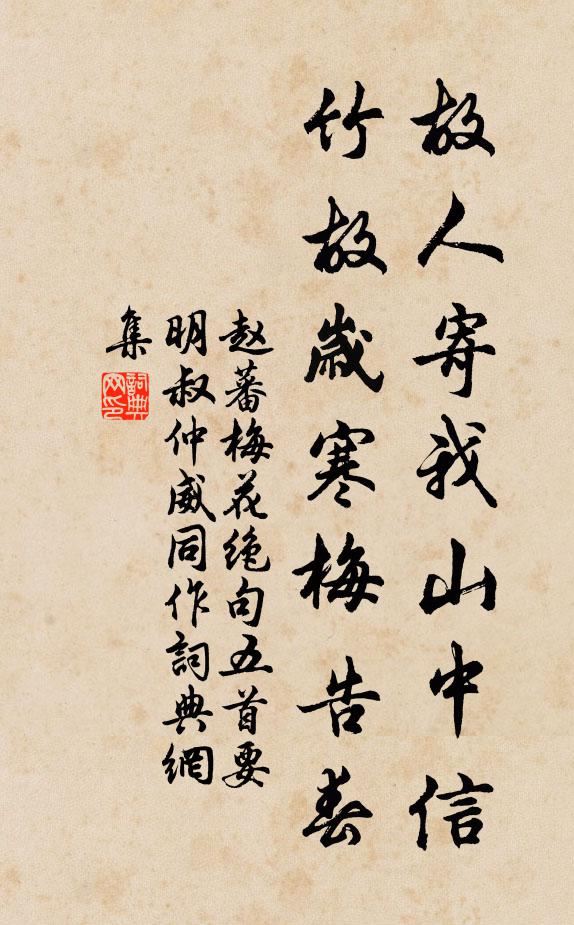 故人寄我山中信
竹故歲寒梅告春
赵蕃梅花绝句五首要
明叔仲威同作詞典網
集
詞典
网印